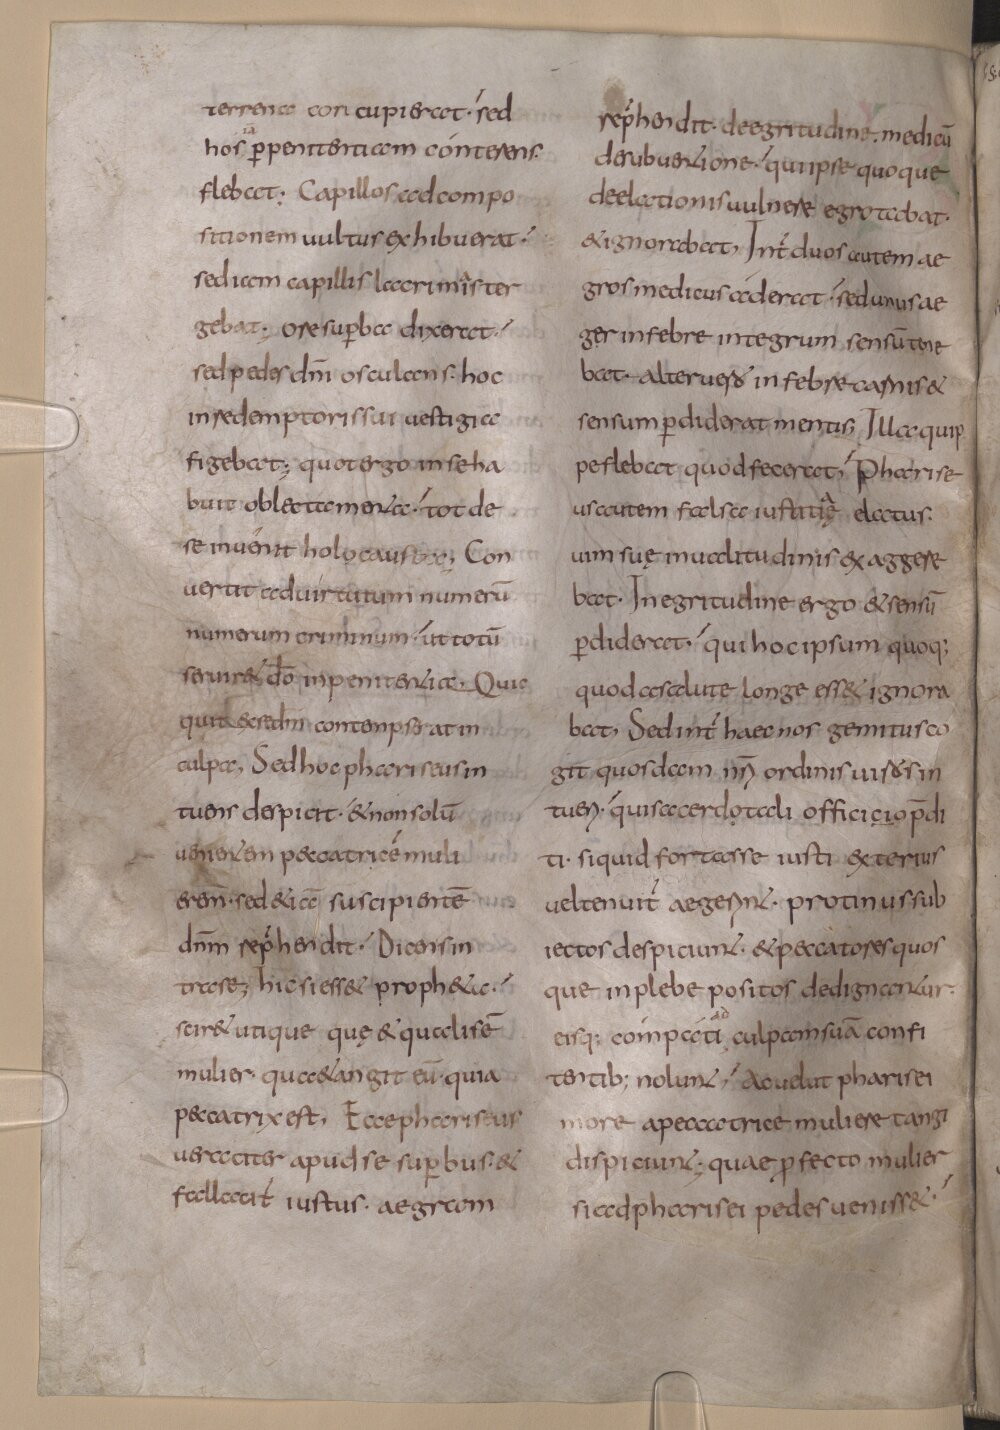 terrena concupierat· sed
hos ꝑpenitentiam conterens
flebat; Capillos ad compo
sitionem uultus exhibuerat·
sed iam capillis lacrimas ter
gebat· ore suꝑba dixerat·
sed pedes dm̄ osculans· hoc
in redemptoris sui uestigia
figebat; quot ergo in se ha
buit oblectamenta· tot de
se inuenit holocausta; Con
uertit ad uirtutum numerū
numerum criminum· ut totū
seruir& dō in penitentia· Quic
quid ex se dm̄ contempserat in
culpa, Sed hoc phariseus in
tuens despicit· & non solū
uenientem peccatricē muli
erem· sed &iā suscipientē
dnm̄ rep̄hendit· Dicens in
tra se; hic si ess& proph&a·
scir& utique quę & qualis ē
mulier· quae tangit eū· quia
peccatrix est, Ecce phariseus
ueraciter apud se suꝑbus· &
fallacit̄ iustus· aegram
rep̄hendit· de egritudine· medicū
de subuentione· qui ipse quoque
de elationis uulnere egrotabat·
& ignorabat, Int̄ duos autem ae
gros medicus aderat· sed unus ae
ger in febre integrum sensū tene
bat· alter uero in febre carnis &
sensum ꝑdiderat mentis; Illa quip
pe flebat quod fecerat, Pharise
us autem falsa iustitię elatus·
uim suę inualitudinis exaggere
bat· In egritudine ergo & sensū
ꝑdiderat· qui hoc ipsum quoq;
quod a salute longe ess& ignora
bat, Sed int̄ haec nos gemitus co
git quosdam nr̄i ordinis uiros in
tueri· qui sacerdotali officio p̄di
ti· si quid fortasse iusti exterius
uel tenuit̄ aegerint· protinus sub
iectos despiciunt· & peccatores quos
que in plebe positos dedignantur·
eisq; compati culpam suā confi
tentib; nolunt, Ac uelut pharisei
more a peccatrice muliere tangi
dispiciunt; quae ꝓfecto mulier
si ad pharisei pedes ueniss&·